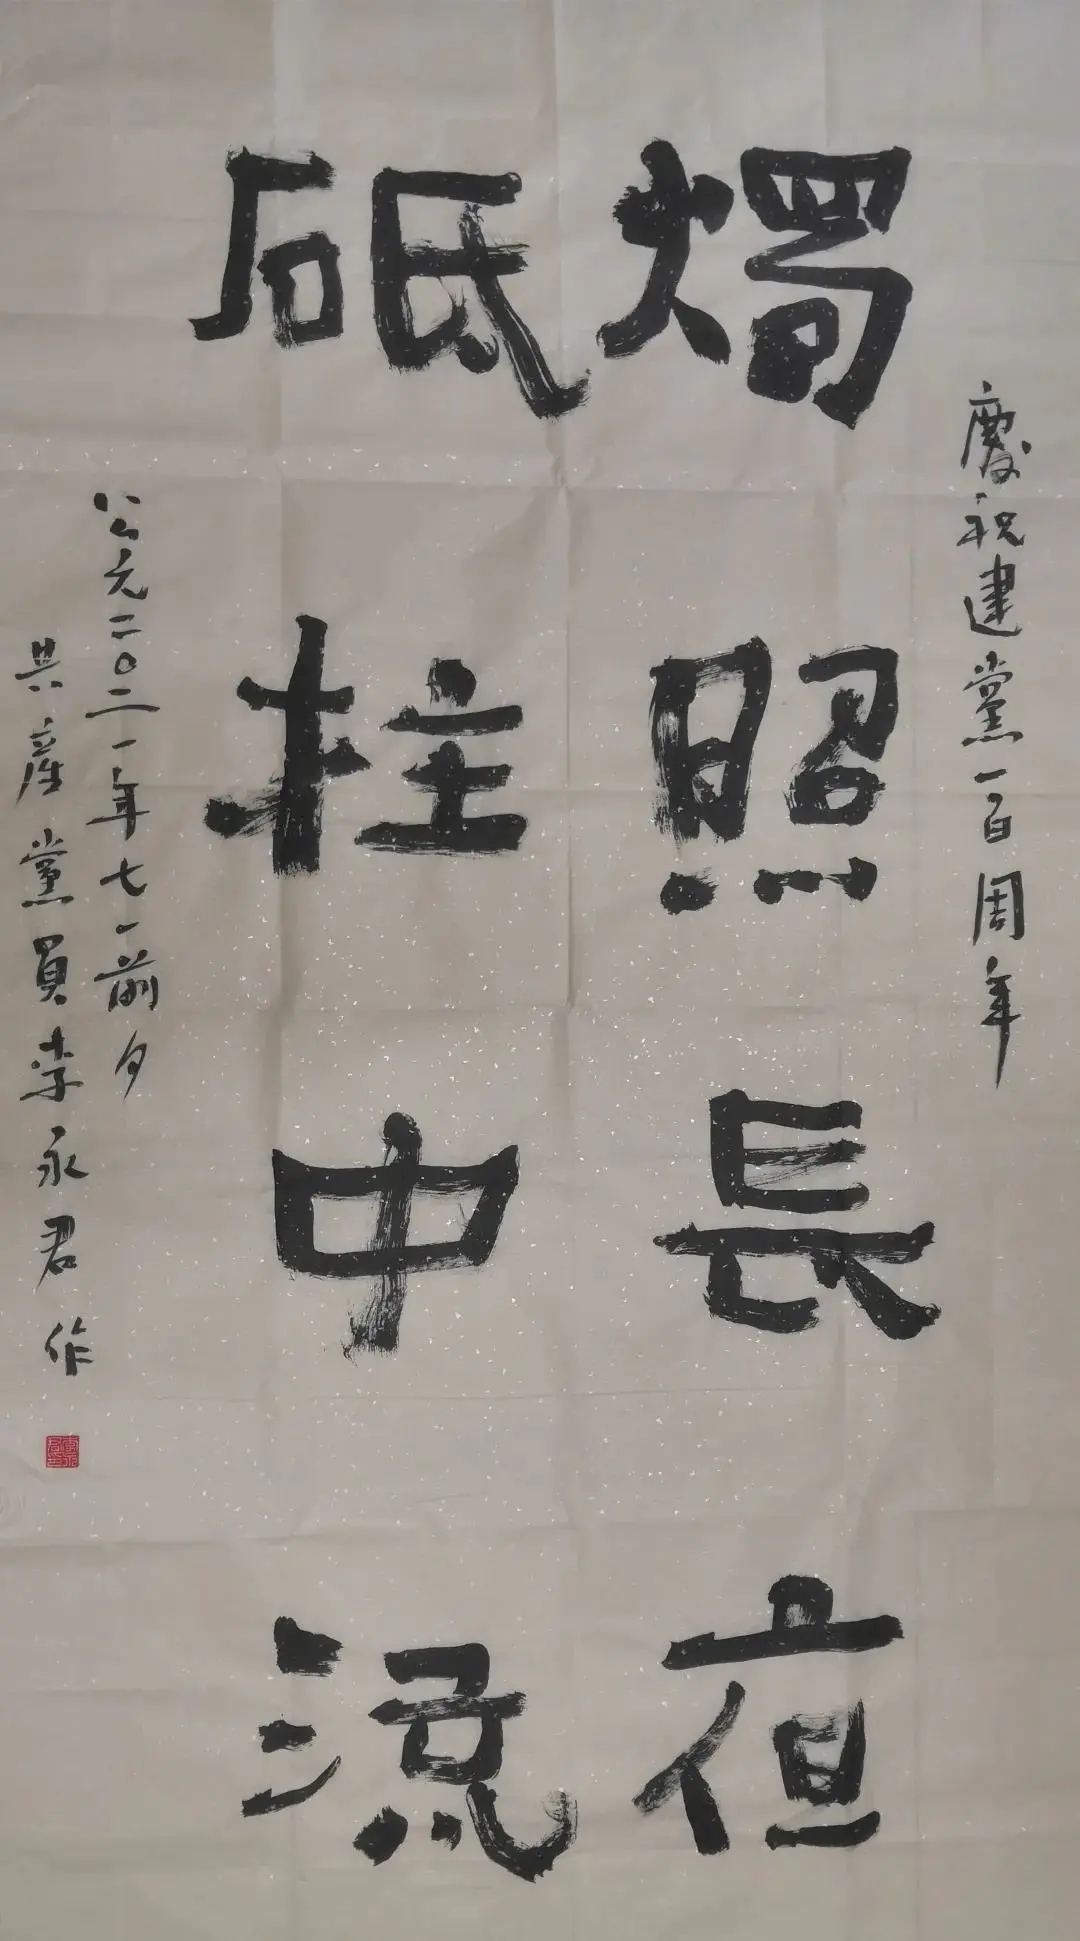 慶祝建黨一百周年
燭照長夜
砥柱中流
公元二〇二一年七一前夕
共產黨員李永君作